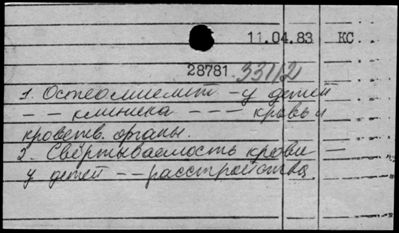 11.04.83 КС
28781 331/2
1. Остеомиелит - у детей
- - клиника - - - кровь и
кроветв. органы.
3. Свёртываемость крови -
у детей - - расстройства